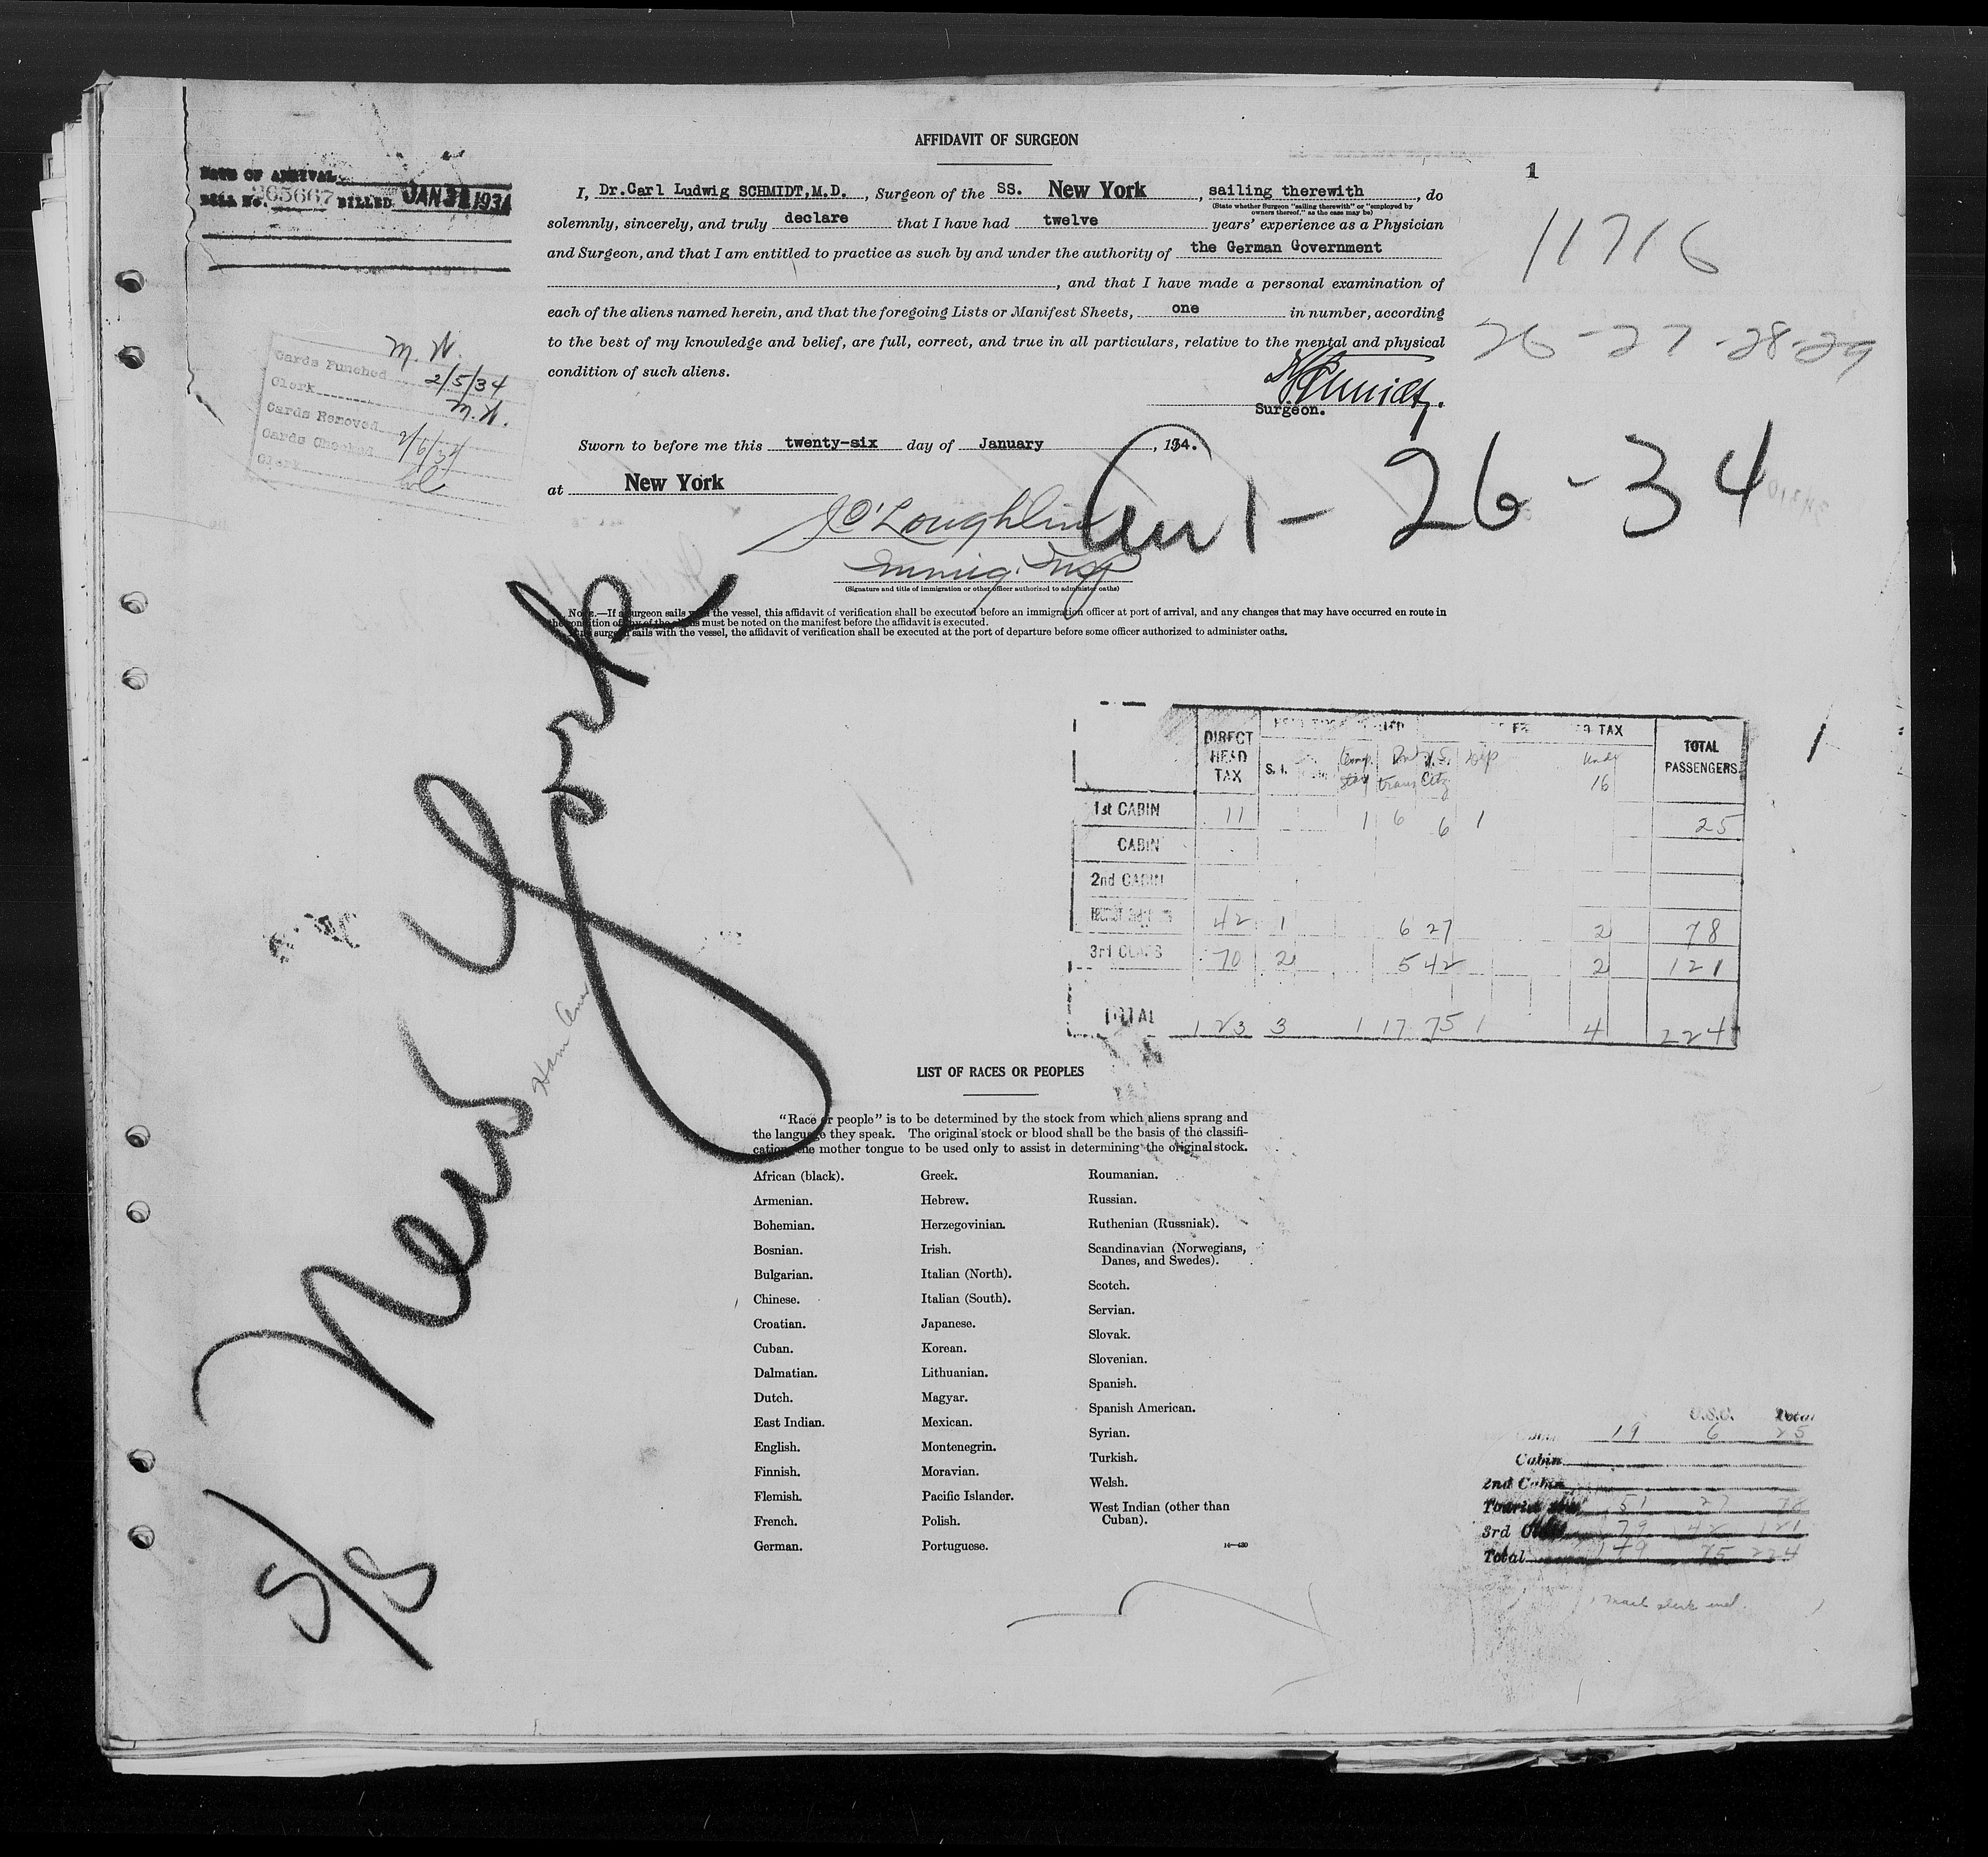 AFFIDAVIT OF SURGEON
1
DATE OF ARRIVAL
BILL No. 265667 BILLED JAN 31 1934
I, Dr.Carl Ludwig SCHMIDT,M.D. , Surgeon of the SS. New York , sailing therewith , do
(State whether Surgeon "sailing therewith" or "employed by
owners thereof," as the case may be)
solemnly, sincerely, and truly declare that I have had twelve years' experience as a Physician
and Surgeon, and that I am entitled to practice as such by and under the authority of the German Government
, and that I have made a personal examination of
each of the aliens named herein, and that the foregoing Lists or Manifest Sheets, one in number, according
to the best of my knowledge and belief, are full, correct, and true in all particulars, relative to the mental and physical
condition of such aliens.
Schmidt.
Surgeon.
11716
26-27-28-29
M. W.
Cards Punched 2/5/34
Clerk M.W.
Cards Removed
Cards Checked 2/6/34
Clerk
Sworn to before me this twenty-six day of January , 1934.
at New York
Arr 1-26-34
O'Loughlin
Immig. Insp
(Signature and title of immigration or other officer authorized to administer oaths)
NOTE.—If a surgeon sails with the vessel, this affidavit of verification shall be executed before an immigration officer at port of arrival, and any changes that may have occurred en route in
the condition of any of the aliens must be noted on the manifest before the affidavit is executed.
surgeon sails with the vessel, the affidavit of verification shall be executed at the port of departure before some officer authorized to administer oaths.
S/S New York
Ham Amer
DIRECT HEAD TAX S. I. Temp. stay trans U.S. Citz Dip TAX Under 16 TOTAL PASSENGERS
1st CABIN 11 1 6 6 1 25
CABIN
2nd CABIN
TOURIST 42 1 6 27 2 78
3rd CLASS 70 2 5 42 2 121
TOTAL 123 3 1 17 75 1 4 224
1
LIST OF RACES OR PEOPLES
"Race or people" is to be determined by the stock from which aliens sprang and
the language they speak. The original stock or blood shall be the basis of the classifi-
cation, the mother tongue to be used only to assist in determining the original stock.
African (black).
Armenian.
Bohemian.
Bosnian.
Bulgarian.
Chinese.
Croatian.
Cuban.
Dalmatian.
Dutch.
East Indian.
English.
Finnish.
Flemish.
French.
German.
Greek.
Hebrew.
Herzegovinian.
Irish.
Italian (North).
Italian (South).
Japanese.
Korean.
Lithuanian.
Magyar.
Mexican.
Montenegrin.
Moravian.
Pacific Islander.
Polish.
Portuguese.
Roumanian.
Russian.
Ruthenian (Russniak).
Scandinavian (Norwegians,
Danes, and Swedes).
Scotch.
Servian.
Slovak.
Slovenian.
Spanish.
Spanish American.
Syrian.
Turkish.
Welsh.
West Indian (other than
Cuban).
14—420
U.S.C. Total
19 6 25
Cabin
2nd Cabin
Tourist 51 27 78
3rd 79 42 121
Total 75 224